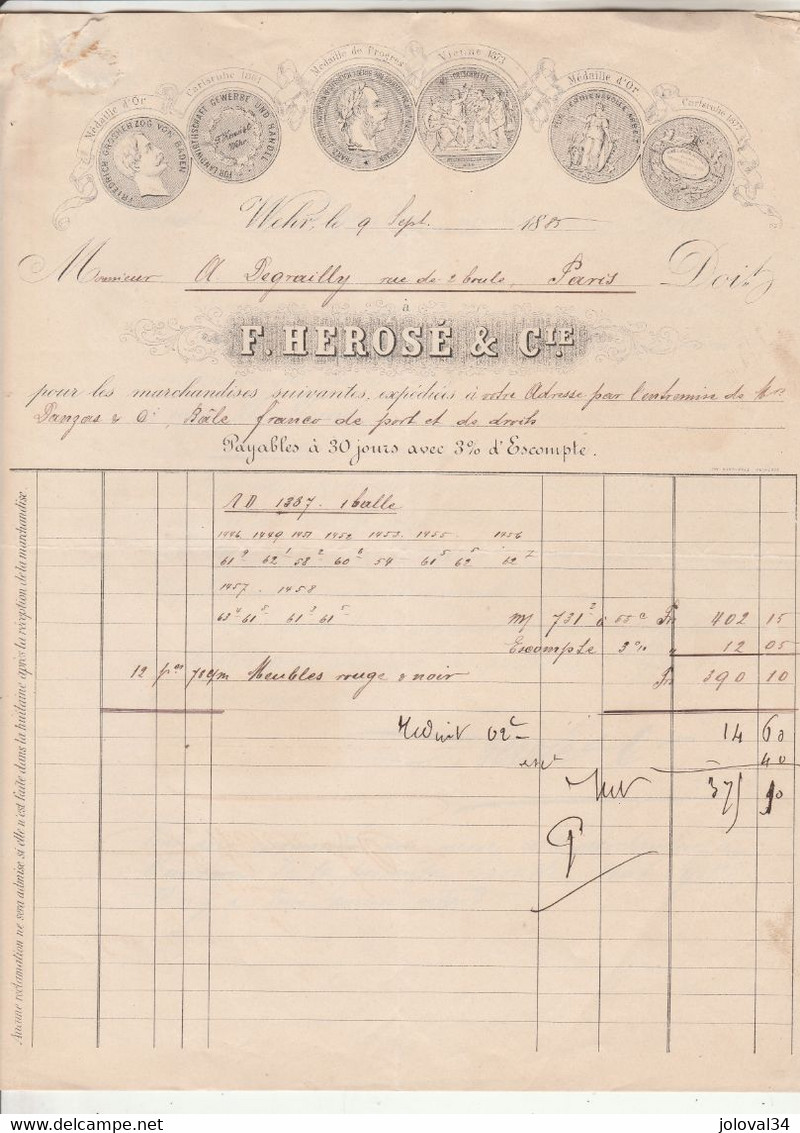 Médaille d'Or Carlsruhe 1861 Médaille de Progrès Vienne 1873 Médaille d'Or Carlsruhe 1877
FRIEDRICH GROSHERZOG VON BADEN
FÜR LANDWIRTHSCHAFT GEWERBE UND HANDEL
Wehr, le 9 Sept. 1885
Monsieur A Degrailly rue de 2 boule, Paris Doit
à
F. HEROSÉ & CIE.
pour les marchandises suivantes, expédiées à votre Adresse par l'entremise de Mrs
Danzas & Cie, Bâle franco de port et de droits
Payables à 30 jours avec 3% d'Escompte.
1387. 1 balle
1446 1449 1451 1452 1453 1455 1456
61 9 62 1 58 2 60 6 54 61 5 62 5 62 7
1457 1458
63 4 61 5 61 3 61 5
m/ 731 2 à 55 c Fr 402 15
Escompte 3% " 12 05
12 pces 78 c/m Meubles rouge & noir Fr 390 10
Reduit 02 c 14 60
40
375 10
Aucune réclamation ne sera admise si elle n'est faite dans la huitaine après la réception de la marchandise.
delcampe.net
joloval34